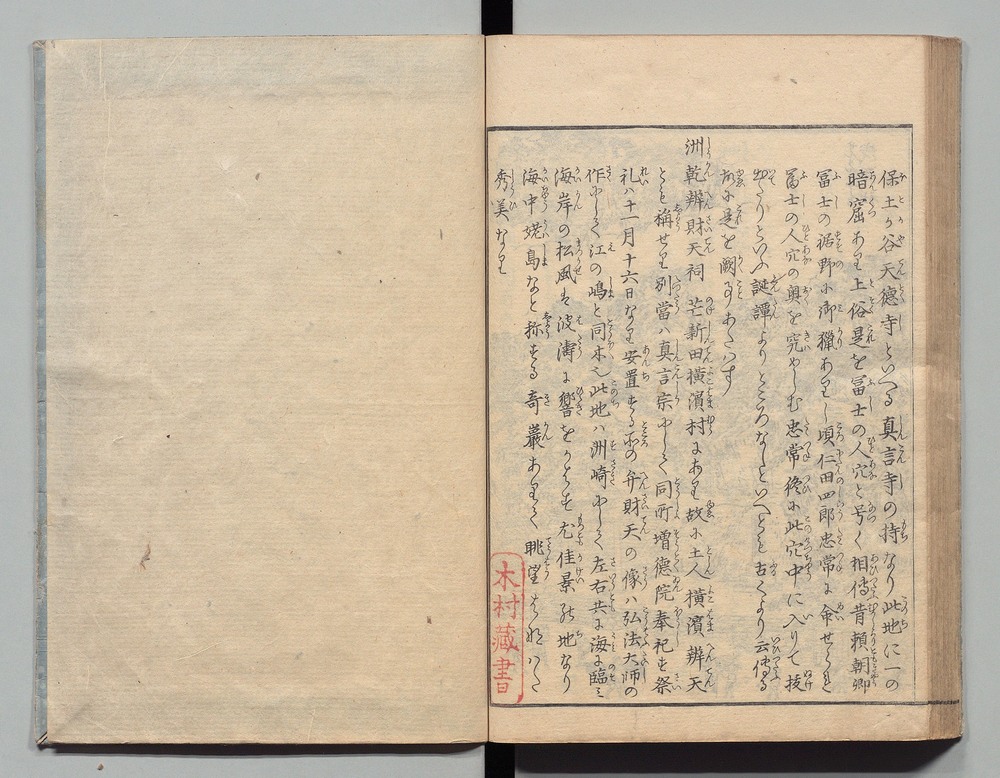 保土ケ谷天徳寺といへる真言寺の持なり此地に一の
暗窟あり土俗是を冨士の人穴と号く相傳昔頼朝卿
冨士の裾野に御獵ありし頃仁田四郎忠常に命せられ
冨士の人穴の奥を究めしむ忠常終に此穴中に入りて抜
出たりといふ誕譚よりところなしといへとも古くより云傳る
故に是を闕事あたはす
洲乾辨財天祠 芒新田横濱村にあり故に土人横濱辨天
とも称せり別當ハ真言宗にして同所増徳院奉祀す祭
礼ハ十一月十六日なり安置する所の弁財天の像ハ弘法大師の
作にして江の嶋と同木也此地ハ洲崎にして左右共に海に臨ミ
海岸の松風は波濤に響をかはす尤佳景の地なり
海中姥島なと称する奇巌ありて眺望はなはた
秀美なり
木村藏書